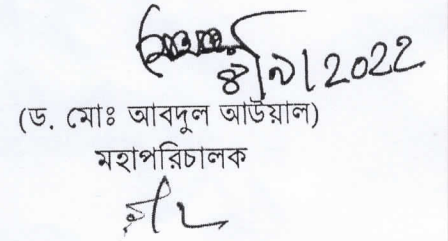 ৪/৯/2022
(ড. মোঃ আবদুল আউয়াল)
মহাপরিচালক